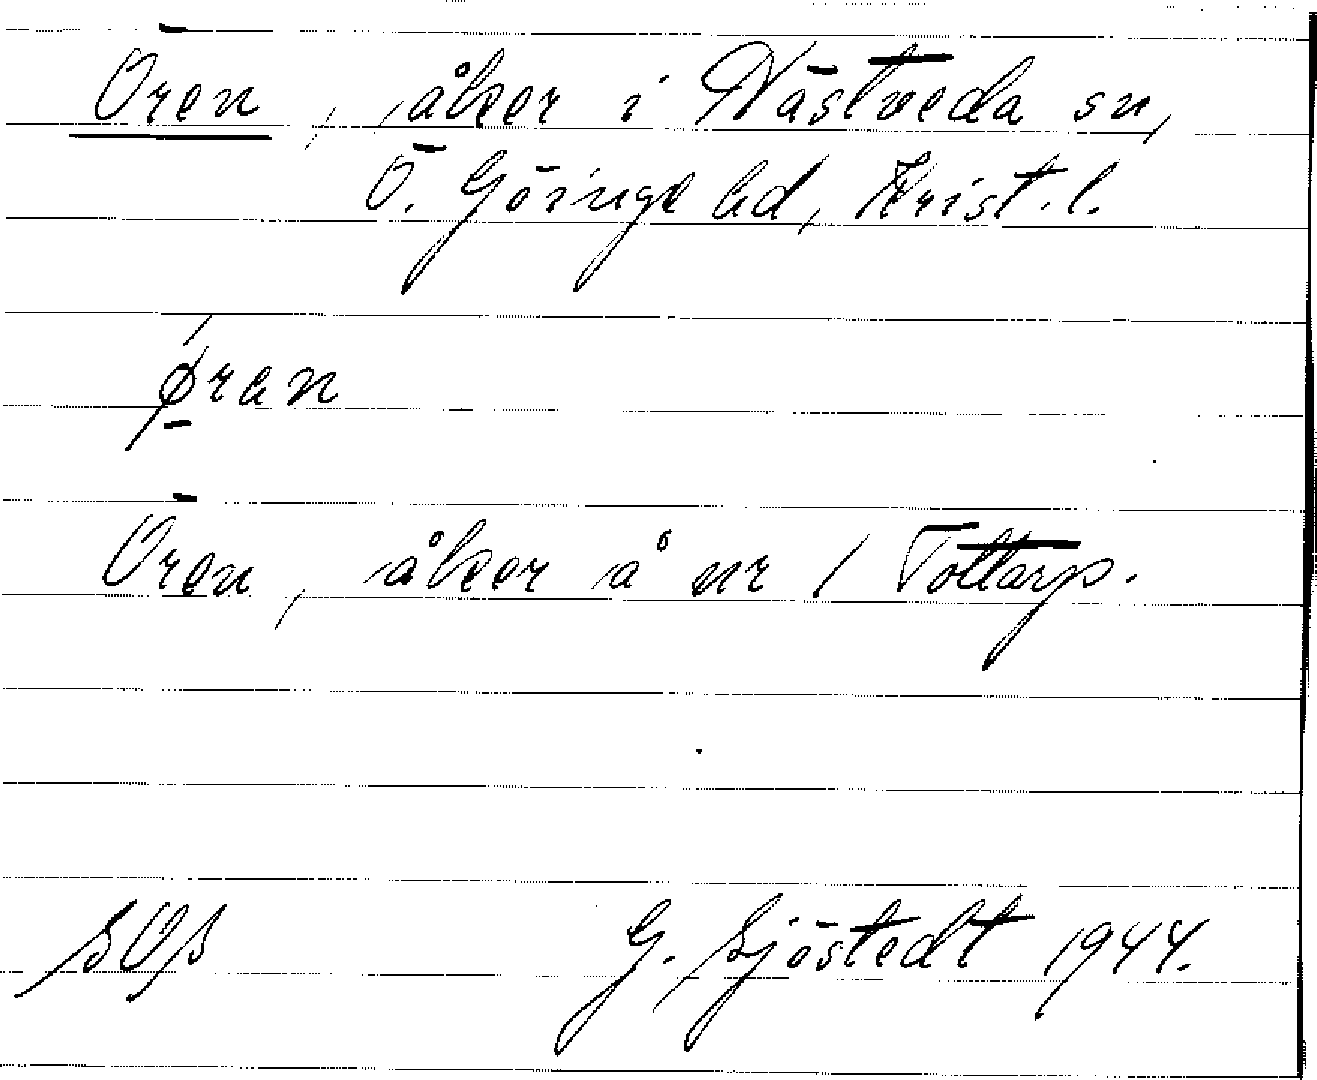 Ören, åker i Nästveda sn,
Ö. Göinge hd, Krist. l.
ǿran
Ören, åker å nr 1 Tottarp.
SOS G. Sjöstedt 1944.